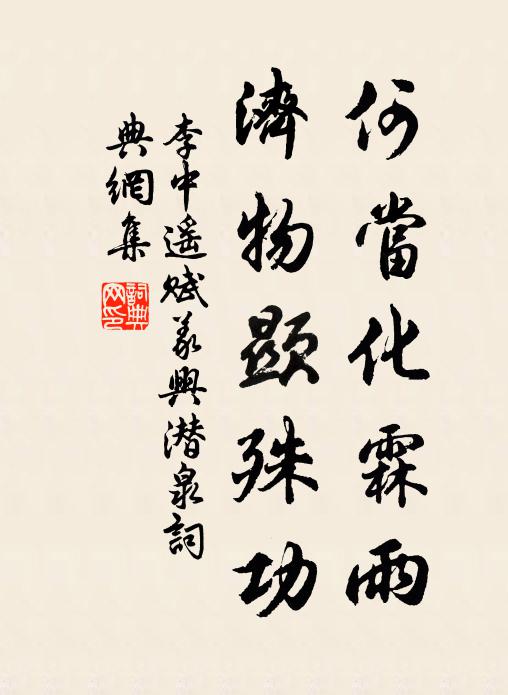 何當化霖雨
濟物顯殊功
李中遥賦義興潛泉詞
典網集
詞典
网印